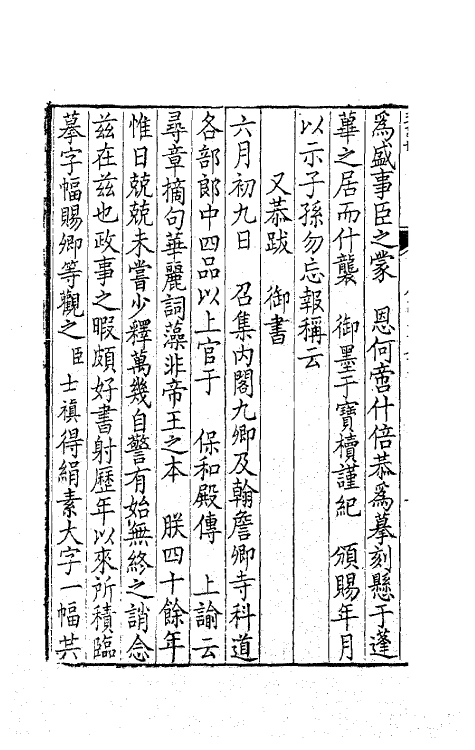 爲盛事臣之蒙　恩何啻什倍恭爲摹刻懸于蓬
蓽之居而什襲　御墨于寶櫝謹紀　頒賜年月
以示子孫勿忘報稱云
又恭跋　御書
六月初九日　召集内閣九卿及翰詹卿寺科道
各部郎中四品以上官于　保和殿傳　上諭云
尋章摘句華麗詞藻非帝王之本　朕四十餘年
惟日兢兢未嘗少釋萬幾自警有始無終之誚念
兹在兹也政事之暇頗好書射歷年以來所積臨
摹字幅賜卿等觀之臣士禛得絹素大字一幅共